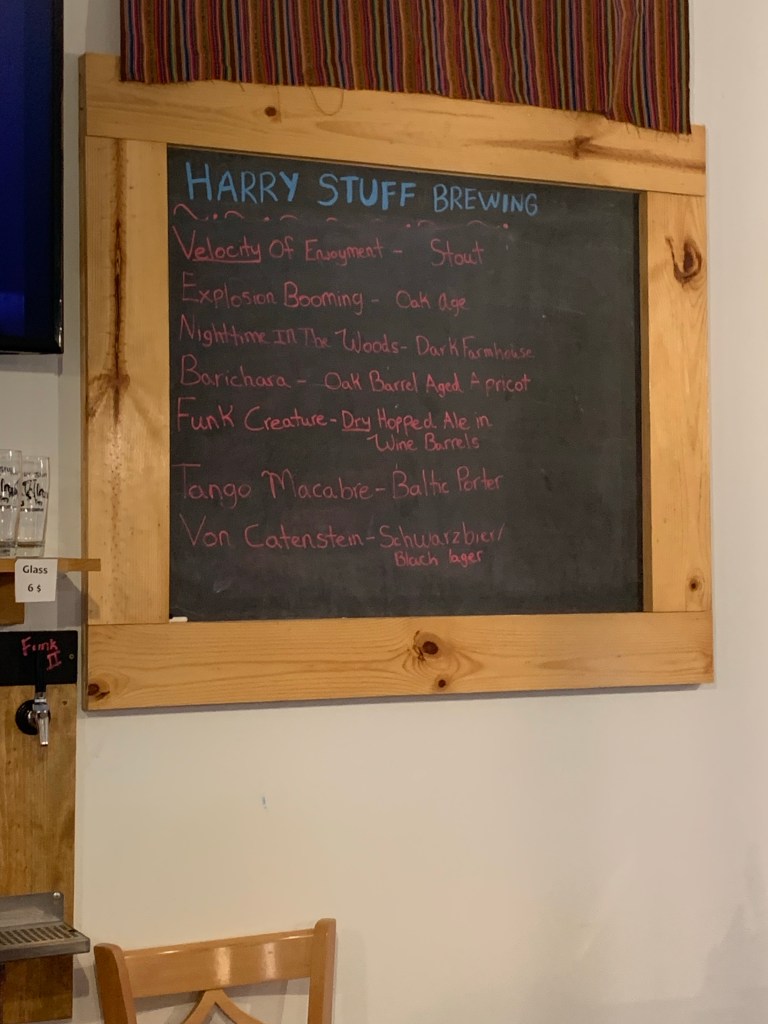 HARRY STUFF BREWING
Velocity Of Enjoyment - Stout
Explosion Booming - Oak Age
Nighttime In The Woods - Dark Farmhouse
Barichara - Oak Barrel Aged Apricot
Funk Creature - Dry Hopped Ale in
Wine Barrels
Tango Macabre - Baltic Porter
Von Catenstein - Schwarzbier/
Blach lager
Glass
6 $
Funk
II